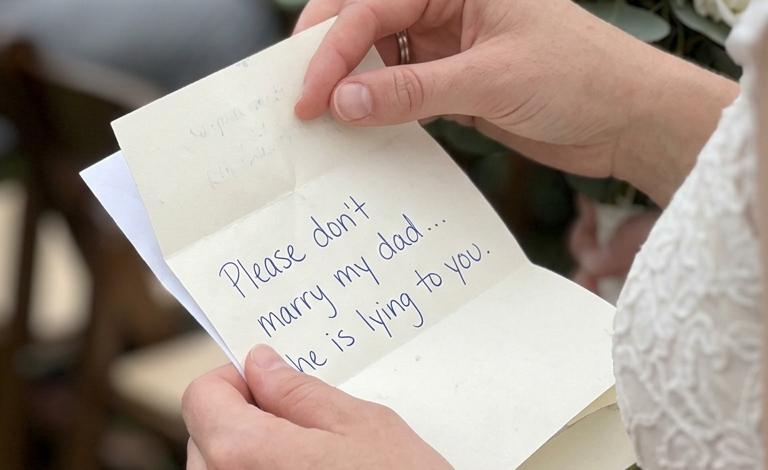 Please don't
marry my dad...
he is lying to you.